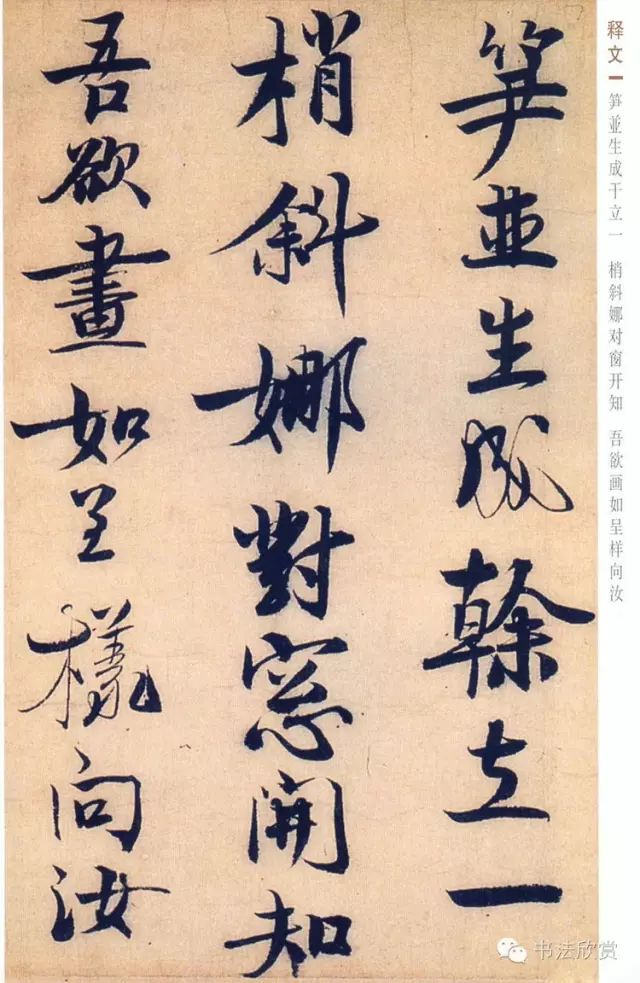 笋並生成幹立一
梢斜娜對窓開知
吾欲畫如呈樣向汝
释文 笋並生成干立一 梢斜娜对窗开知 吾欲画如呈样向汝
书法欣赏